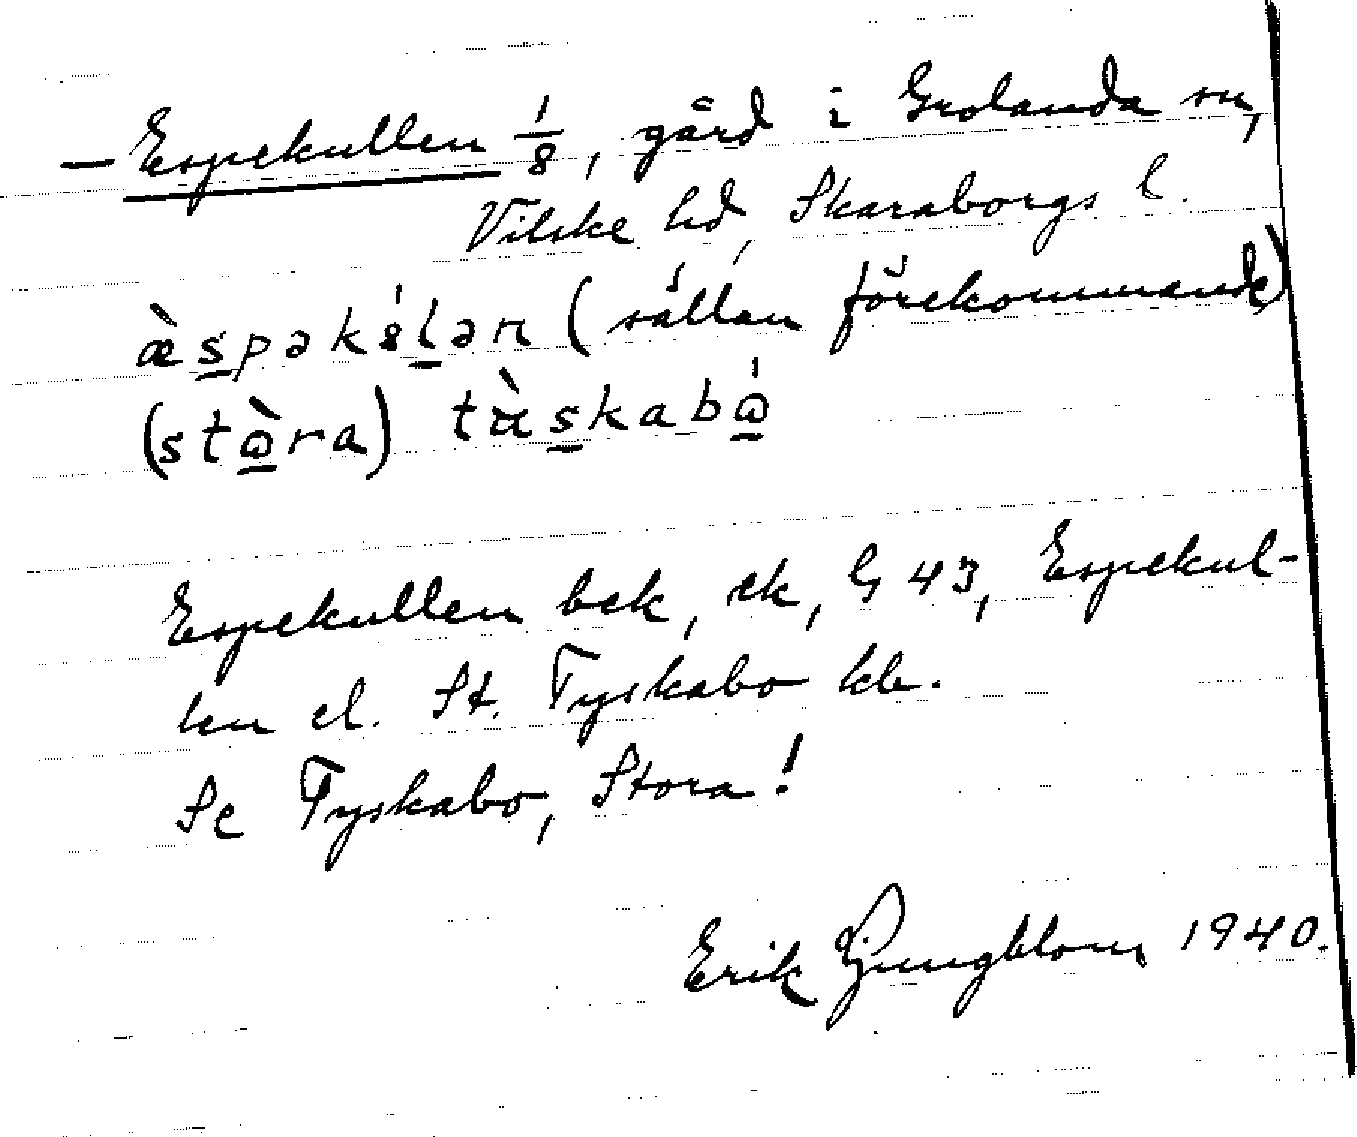 — Espekullen 1/8, gård i Grolanda sn,
Vilske hd, Skaraborgs l.
(sällan förekommande)
(stɷ̀ra)
Espekullen bek, ek, G 43, Espekul-
len el. St. Tyskabo kb.
Se Tyskabo, Stora!
Erik Ljungblom 1940.